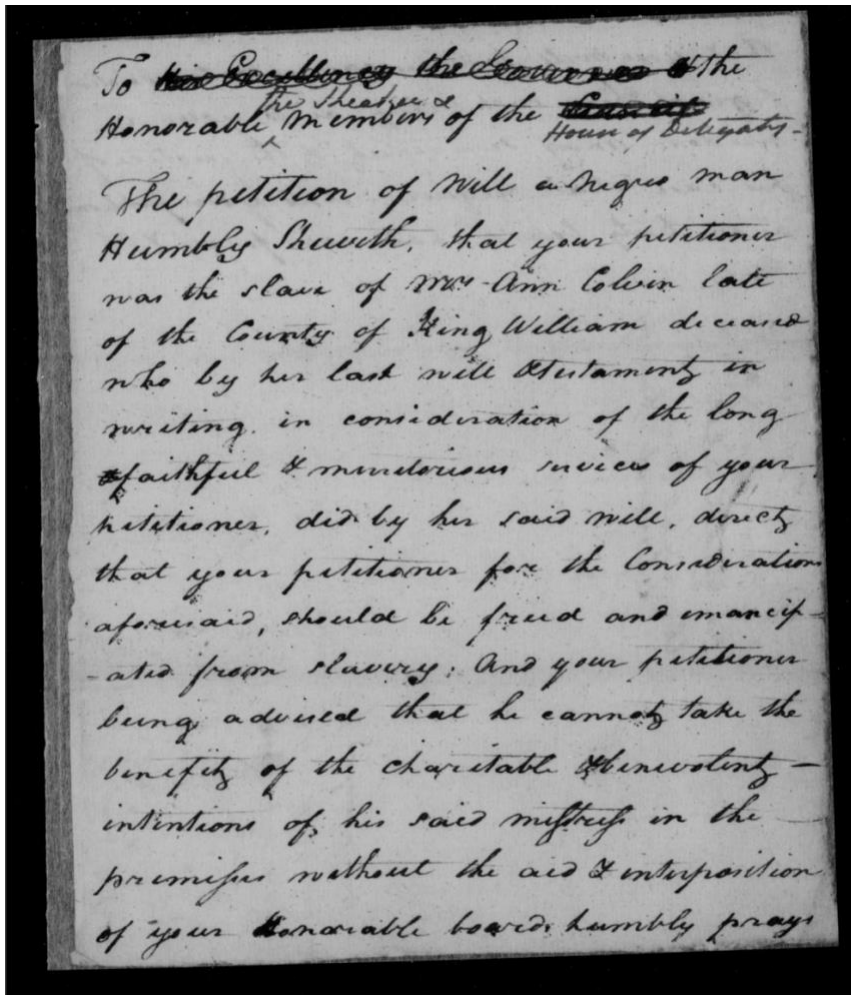 To his Excellency the Governor & the
the Speaker &
Honorable members of the Council
House of Delegates -
The petition of Will a negro man
Humbly Sheweth, that your petitioner
was the slave of Mrs Ann Colvin late
of the County of King William deceased
who by her last will & testament in
writing in consideration of the long
faithful & meritorious services of your
petitioner, did by her said will, direct
that your petitioner for the Considerations
aforesaid, should be freed and emancip
-ated from slavery; And your petitioner
being advised that he cannot take the
benefit of the charitable & benevolent -
intentions of his said mistress in the
premises without the aid & interposition
of your Honorable board, humbly prays